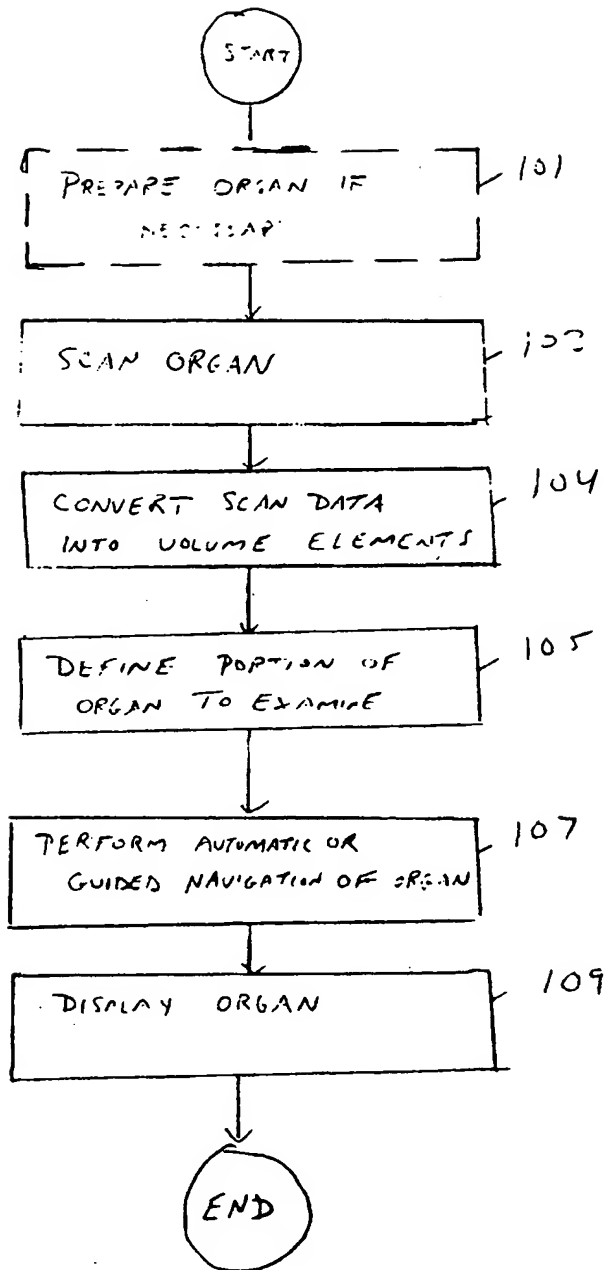 START
PREPARE ORGAN IF
101
SCAN ORGAN
CONVERT SCAN DATA
INTO VOLUME ELEMENTS
104
DEFINE PORTION OF
ORGAN TO EXAMINE
105
PERFORM AUTOMATIC OR
GUIDED NAVIGATION OF ORGAN
107
DISPLAY ORGAN
109
END